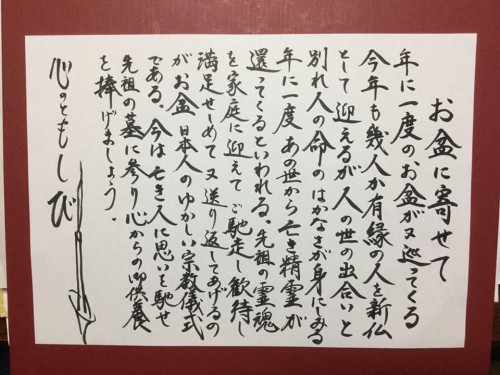 お盆に寄せて
年に一度のお盆が又巡ってくる
今年も幾人か有縁の人を新仏
として迎えるが人の世の出合いと
別れ人の命のはかなさが身にしみる
年に一度あの世から亡き精霊が
還ってくるといわれる。先祖の霊魂
を家庭に迎えてご馳走し歓待し
満足せしめて又送り返してあげるの
がお盆日本人のゆかしい宗教儀式
である、今は亡き人に思いを馳せ
先祖の墓に参り心からの御供養
を捧げましょう。
心のともしび